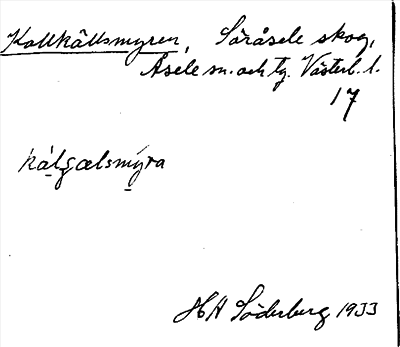 Kallkällsmyren, Söråsele skog,
Åsele sn. och tg. Västerb. l.
17
kálgælsmýra
HA Söderberg 1933